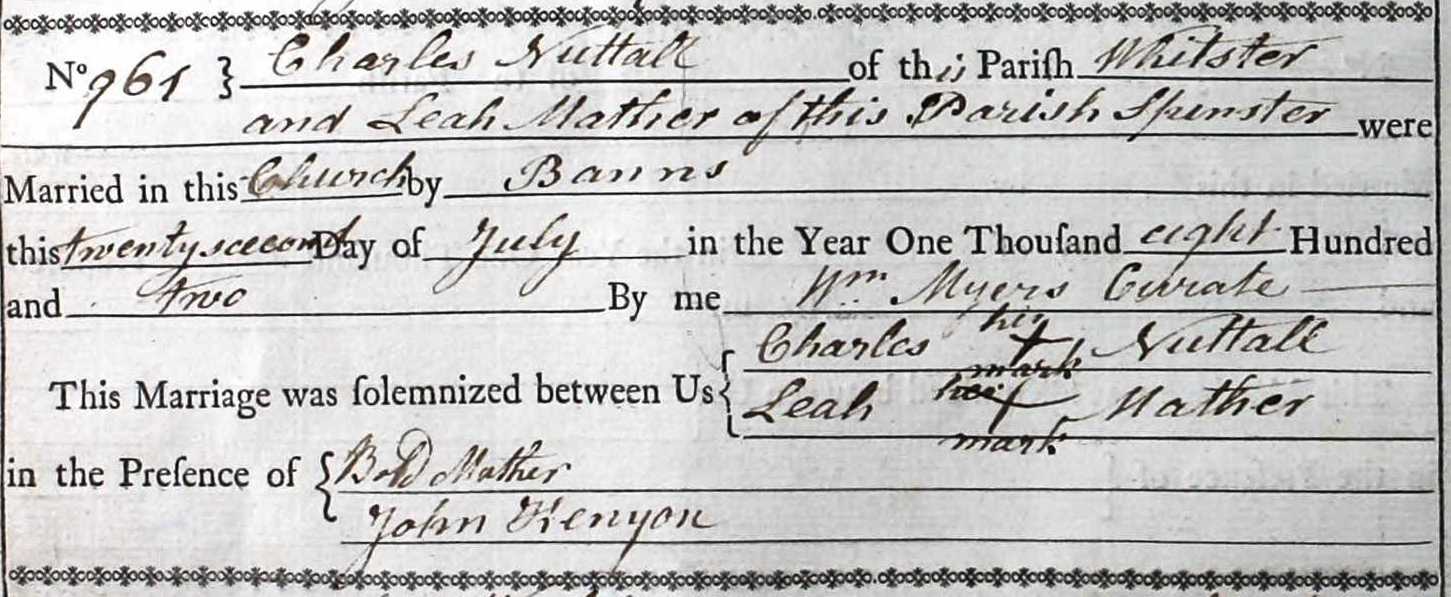 No 961 } Charles Nuttall of this Pariſh Whitster
and Leah Mather of this Parish Spinster were
Married in this Church by Banns
this twenty seccond Day of July in the Year One Thouſand eight Hundred
and two By me Wm Myers Curate
Charles his + mark Nuttall
This Marriage was ſolemnized between Us {
Leah her + mark Mather
in the Preſence of { Mather
John Kenyon